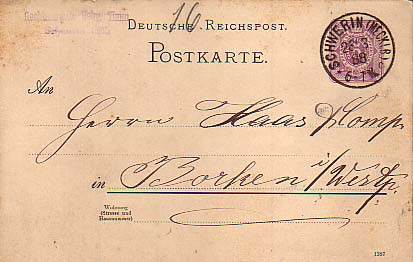 16
DEUTSCHE REICHSPOST.
POSTKARTE.
SCHWERIN (MECKLB)
88
6-7N.
An
Herrn Haas & Comp.
in Borken i/Westf.
Wohnung
(Strasse und
Hausnummer)
1287